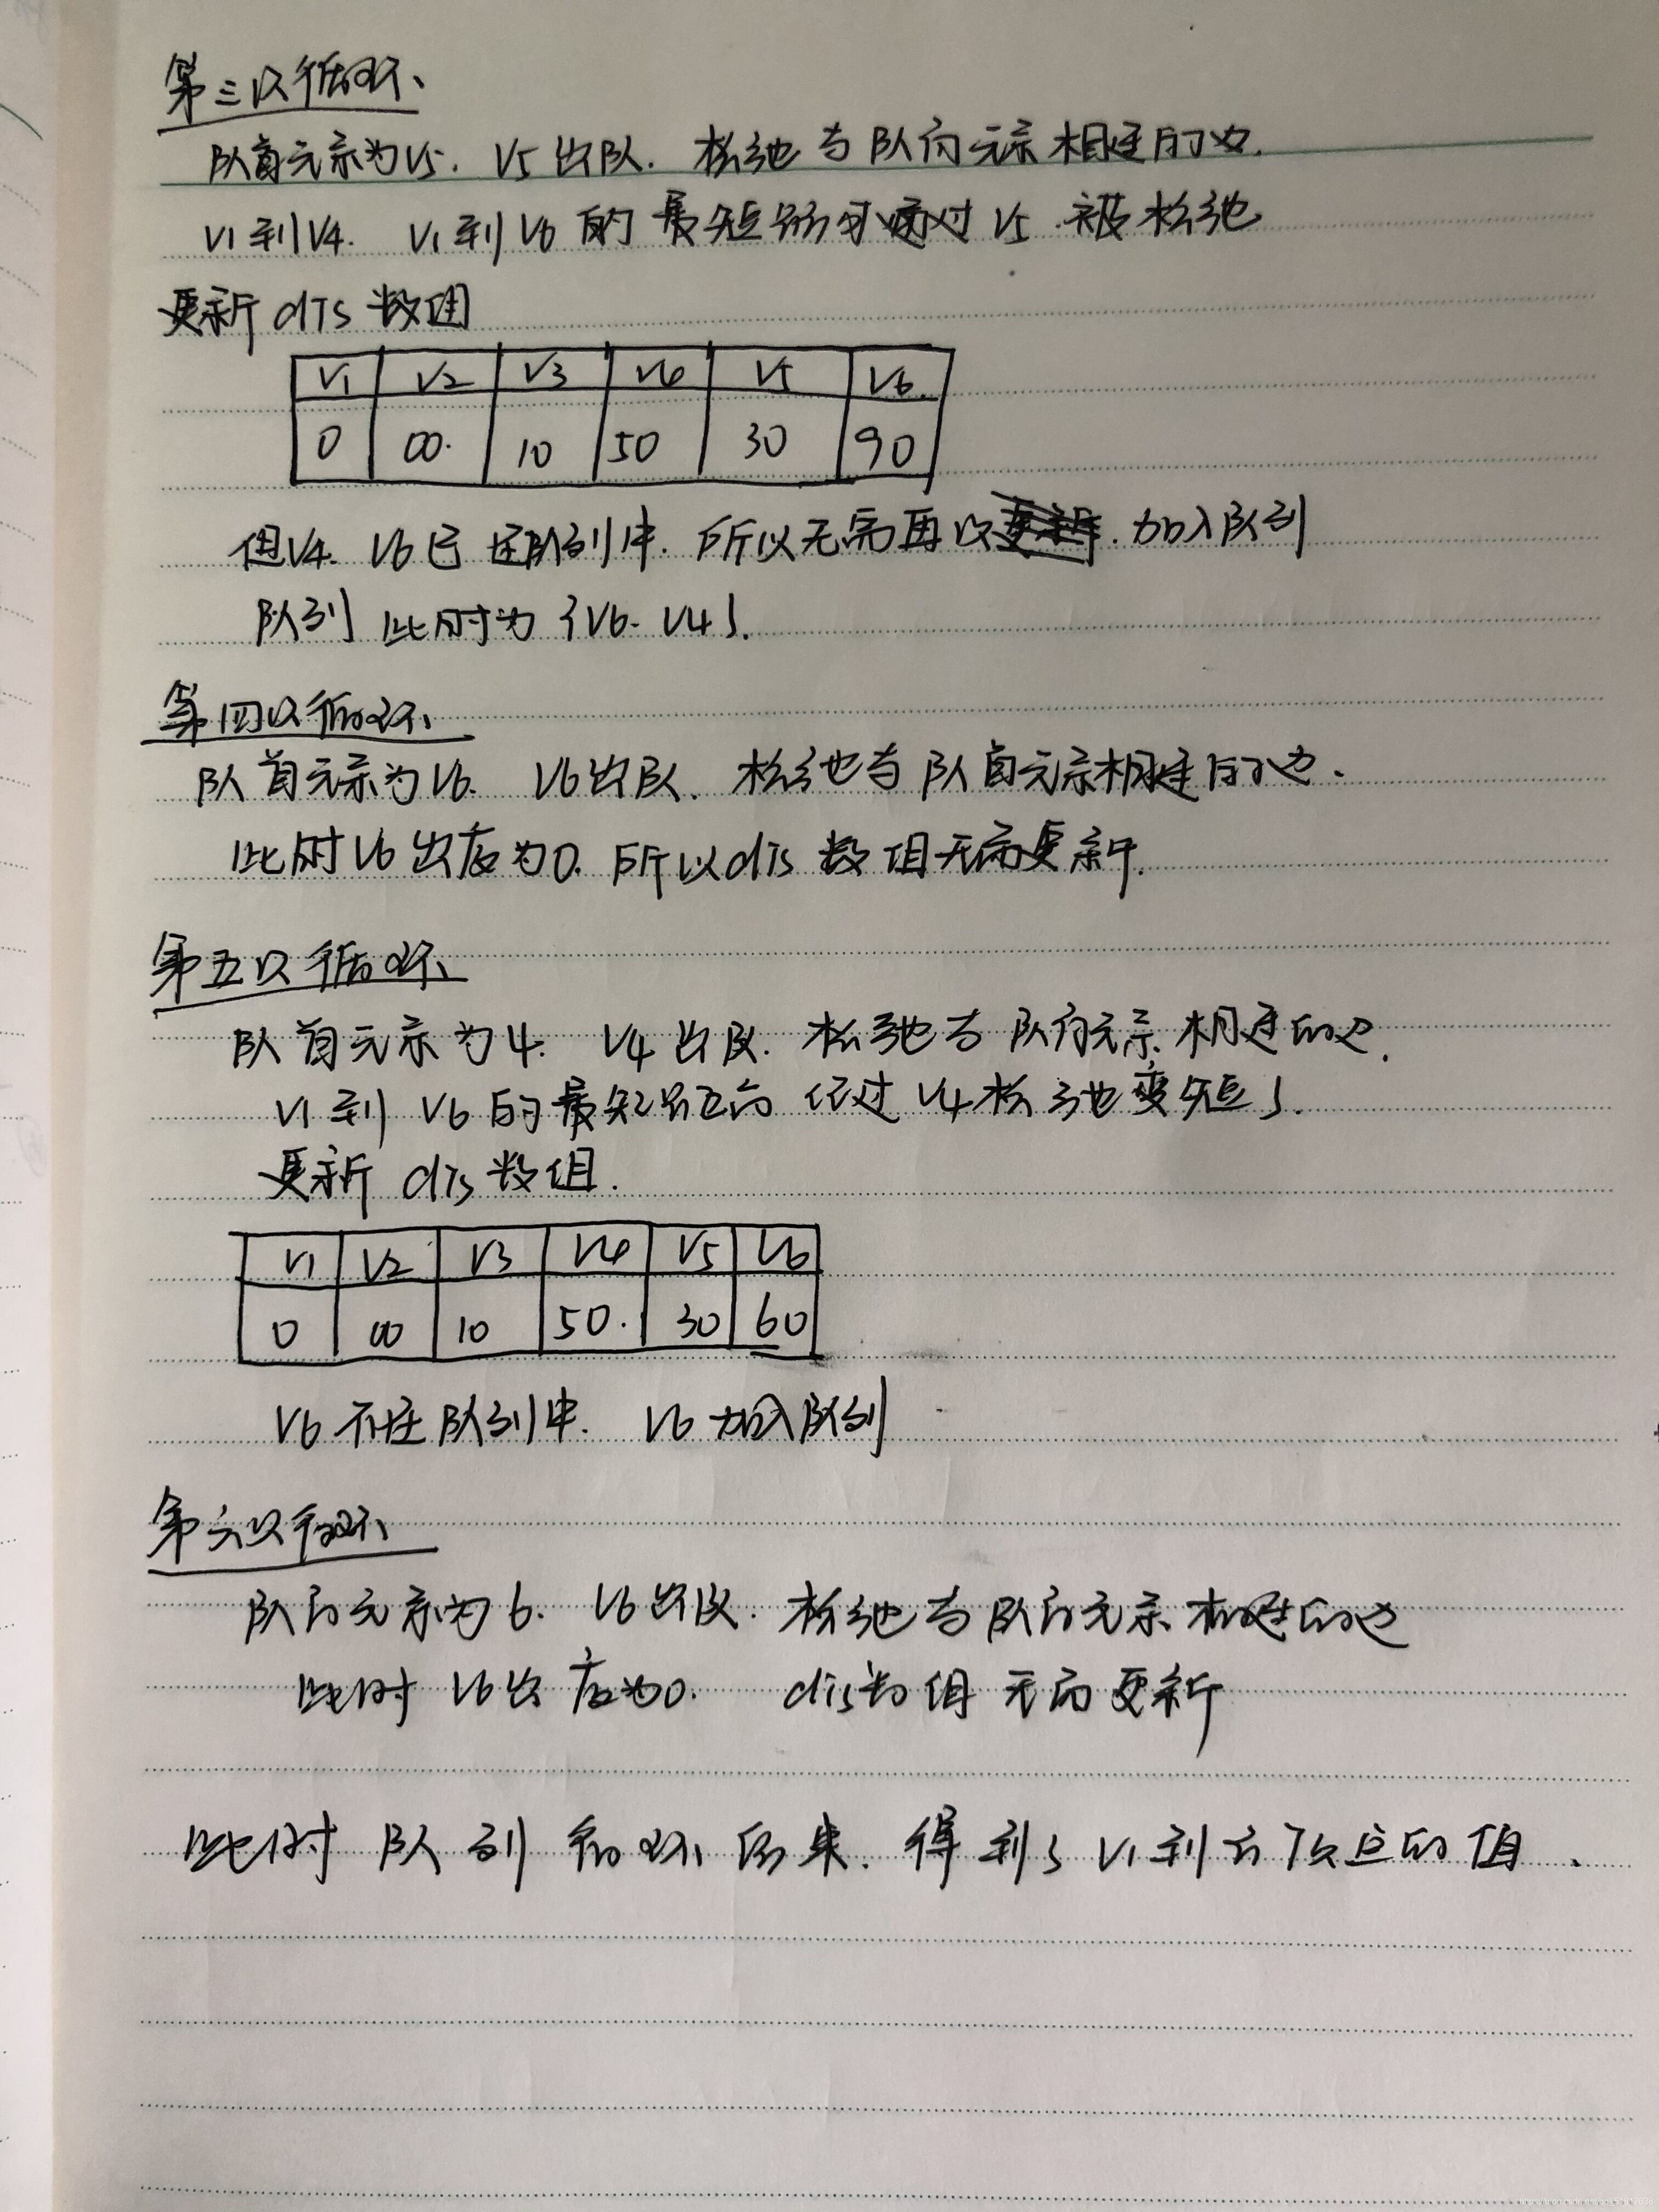 第三次循环、
队首元素为V5. V5出队. 松弛与队首元素相连的边.
V1到V4. V1到V6的最短路可通过V5.被松弛
更新dis数组
V1 V2 V3 V4 V5 V6.
0 ∞. 10 50 30 90
但V4. V6已在队列中. 所以无需再次. 加入队列
队列此时为{V6. V4}.
第四次循环、
队首元素为V6. V6出队. 松弛与队首元素相连的边.
此时V6出度为0. 所以dis数组无需更新.
第五次循环、
队首元素为4. V4出队. 松弛与队首元素相连的边.
V1到V6的最短距离经过V4松弛变短了.
更新dis数组.
V1 V2 V3 V4 V5 V6
0 ∞ 10 50. 30 60
V6不在队列中. V6加入队列
第六次循环、
队首元素为6. V6出队. 松弛与队首元素相连的边
此时V6出度为0. dis数组无需更新
此时队列循环结束. 得到了V1到各顶点的值.